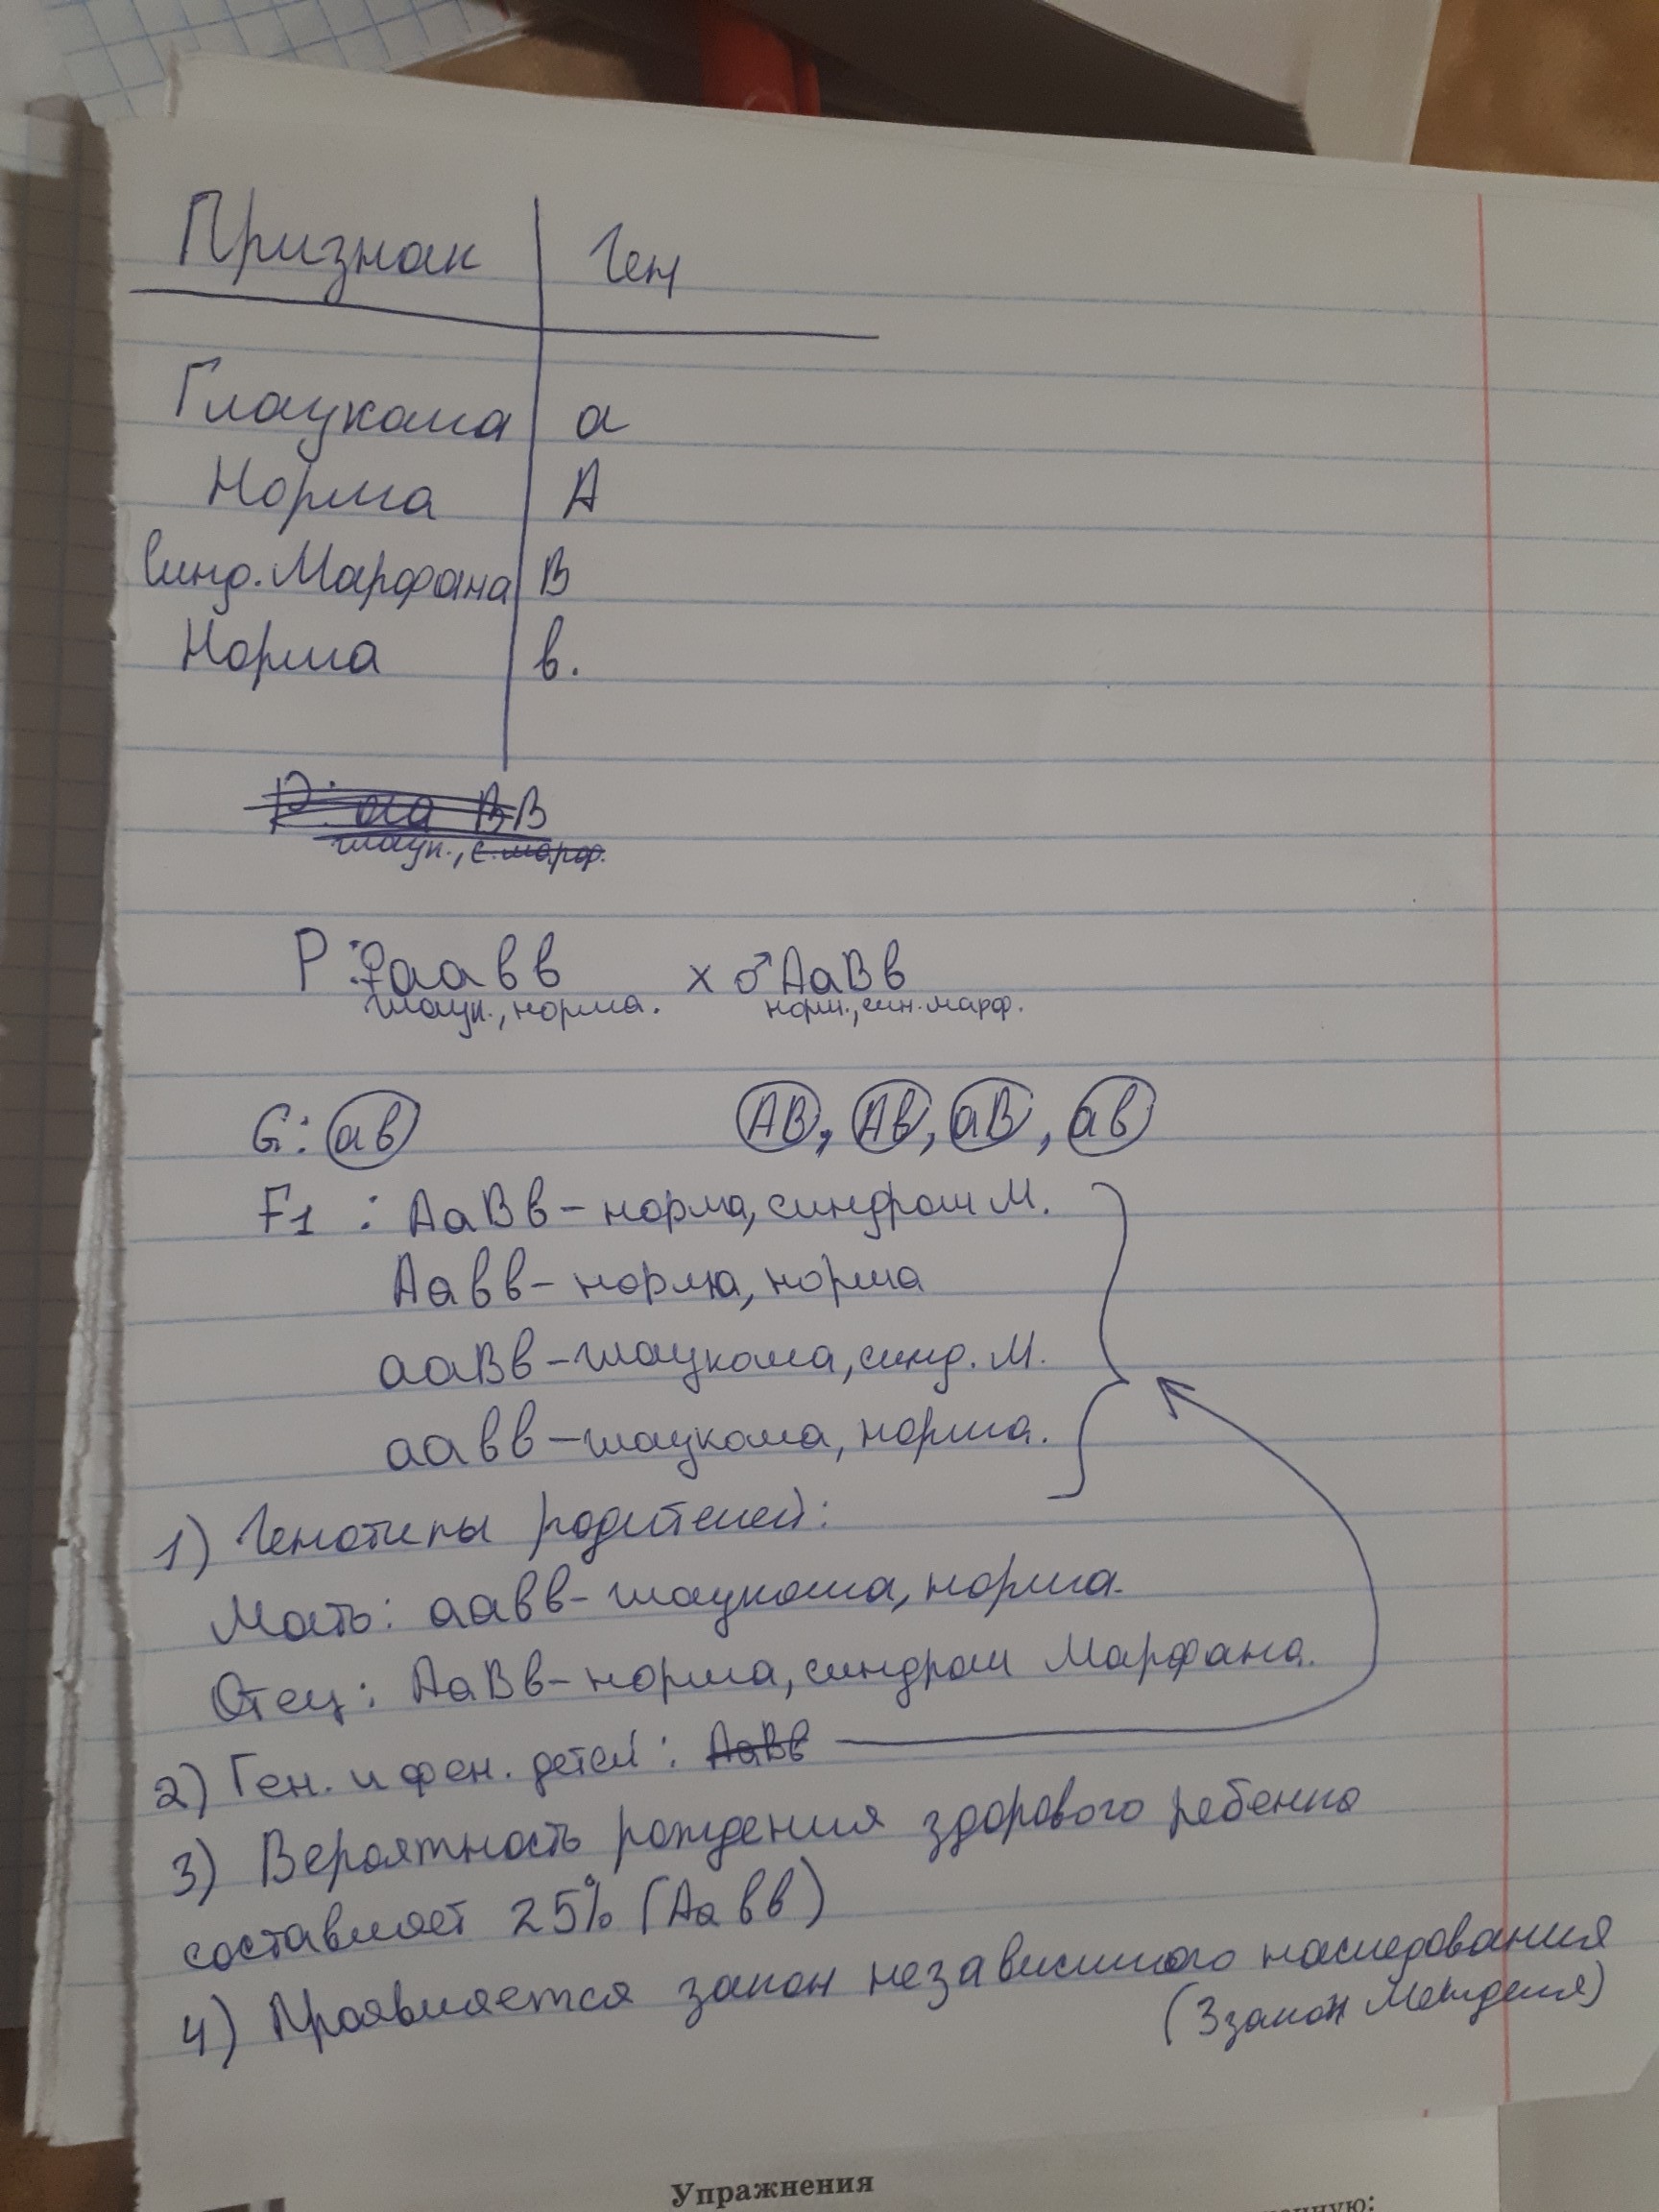 Признак Ген
Глаукома а
Норма А
Синд. Марфана В
Норма в.
Р: аа ВВ
глаук., с. марф.
Р: ♀аавв х ♂АаВв
глаук., норма. норм., син. марф.
G: ав АВ, Ав, аВ, ав
F1 : АаВв – норма, синдром М.
Аавв – норма, норма
ааВв – глаукома, синд. М.
аавв – глаукома, норма.
1) Генотипы родителей:
Мать: аавв – глаукома, норма.
Отец: АаВв – норма, синдром Марфана.
2) Ген. и фен. детей: АаВв
3) Вероятность рождения здорового ребенка
составляет 25% (Аавв)
4) Проявляется закон независимого наследования
(3 закон Менделя)
Упражнения